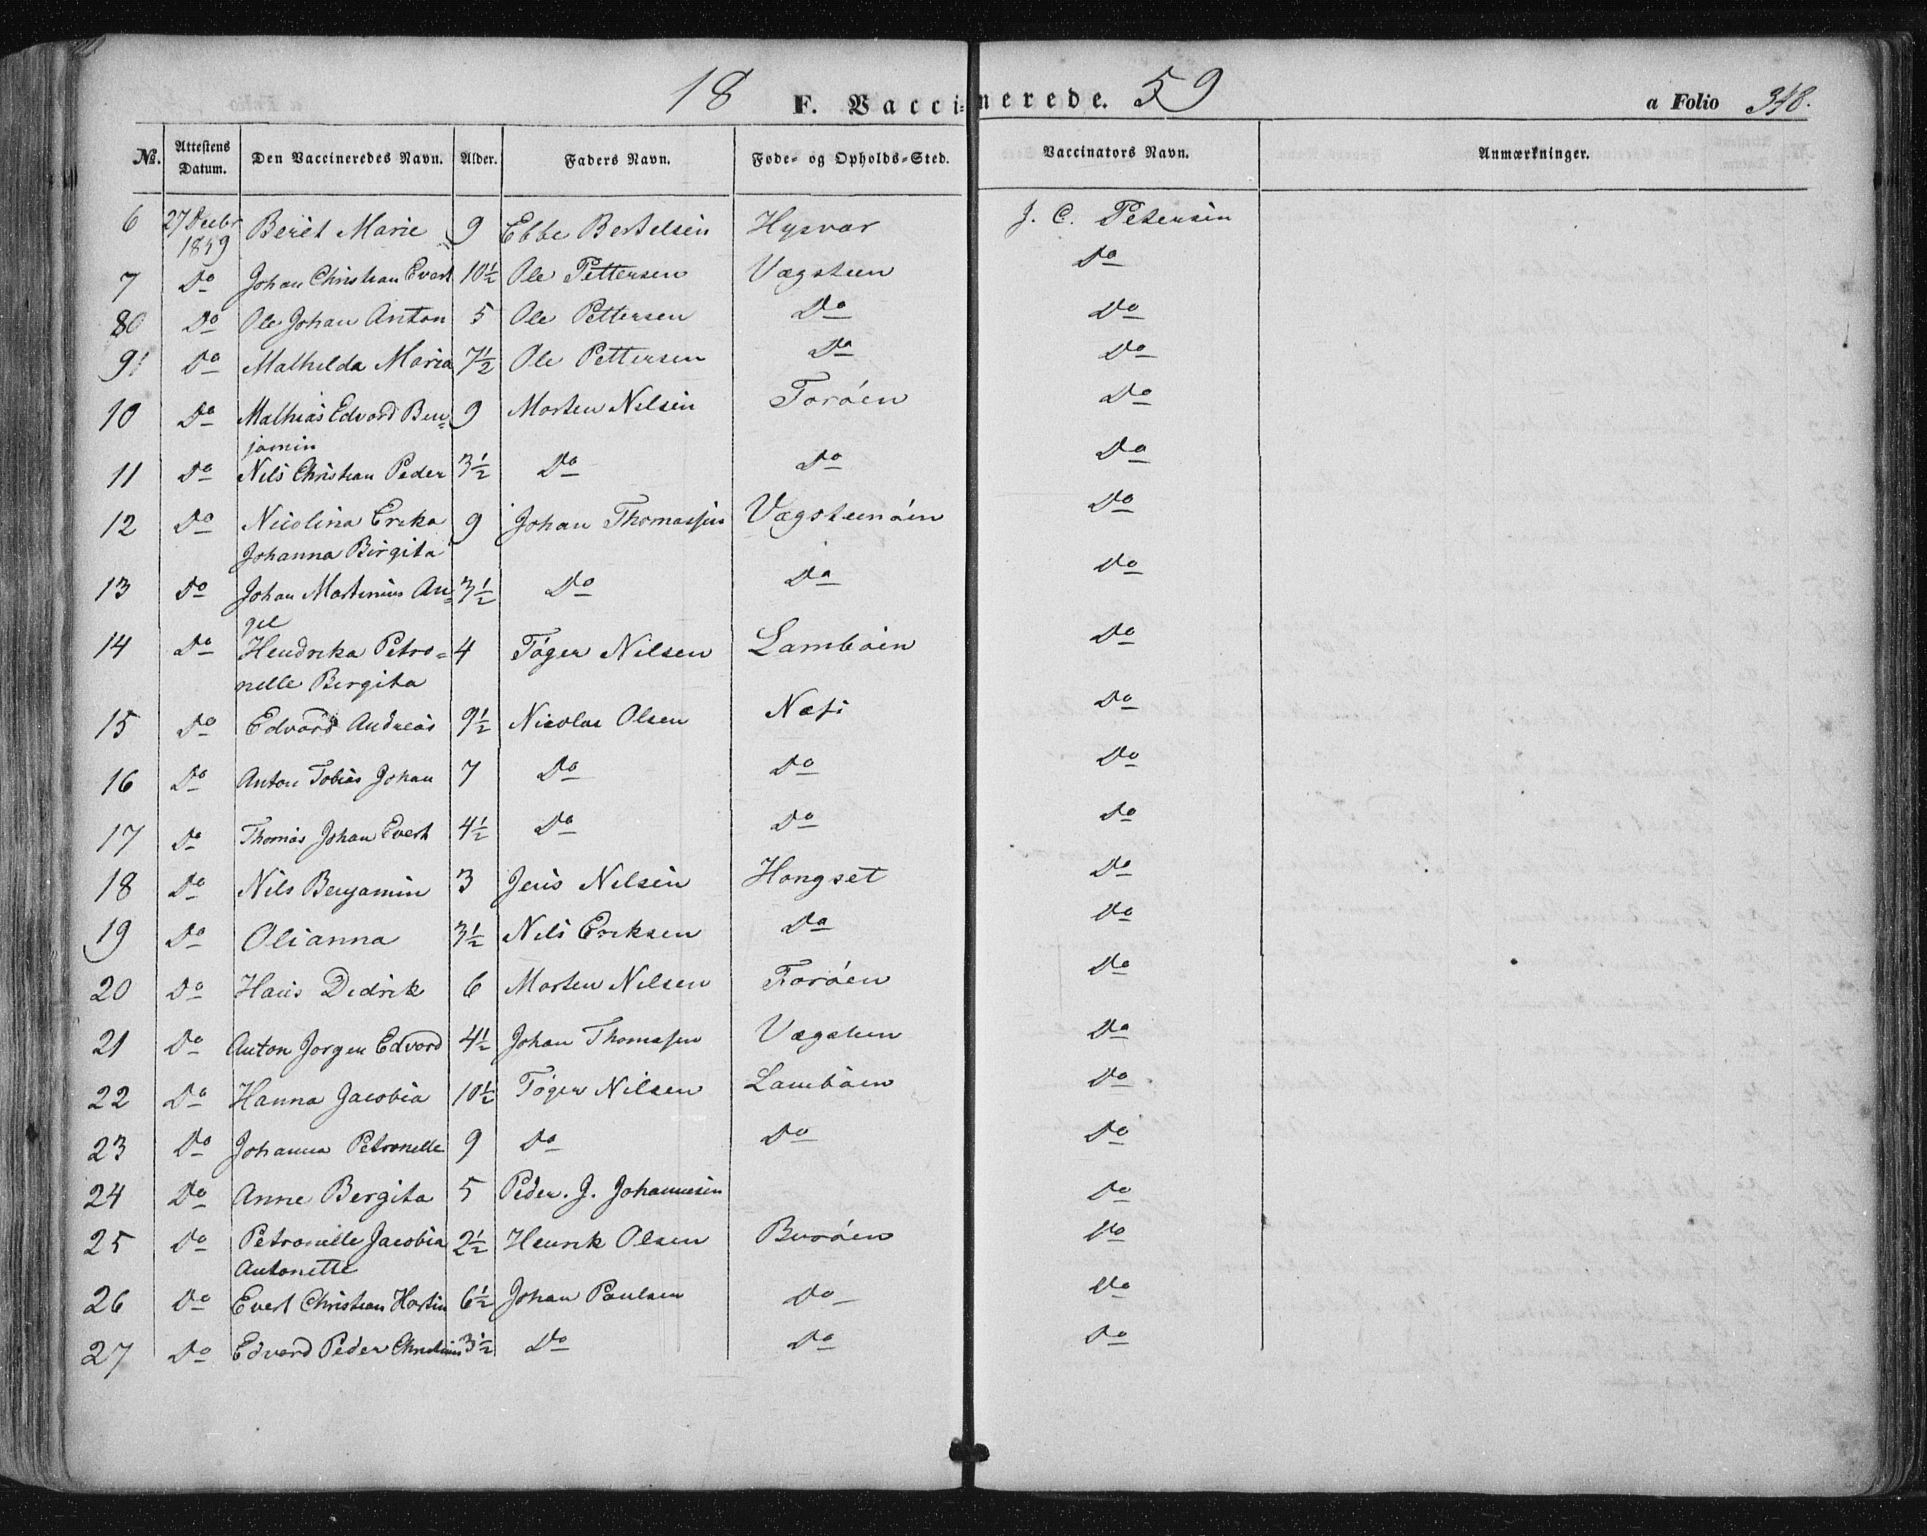 18 F. Vaccinerede. 59 a Folio 348.
No. Attestens Datum. Den Vaccineredes Navn. Alder. Faders Navn. Føde- og Opholds-Sted. Vaccinators Navn. Anmærkninger.
6 27 Decbr 1859 Berit Marie 9 Ebbe Bertelsen Hysvær J. C. Petersen
7 Do Johan Christian Evert 10½ Ole Pettersen Vægsteen Do
80 Do Ole Johan Anton 5 Ole Pettersen Do Do
9 Do Mathilda Maria 7½ Ole Pettersen Do Do
10 Do Mathias Edvard Ben= 9 Morten Nilsen Forøen Do
jamin
11 Do Nils Christian Peder 3½ Do Do Do
12 Do Nicolina Erika 9 Johan Thomassen Vægsteenøen Do
Johanna Birgita
13 Do Johan Martinius An= 3½ Do Do Do
gel
14 Do Hendrika Petro= 4 Tøger Nilsen Lambøen Do
nelle Bergita
15 Do Edvard Andreas 9½ Nicolas Olsen Do
16 Do Anton Tobias Johan 7 Do Do Do
17 Do Thomas Johan Evert 4½ Do Do Do
18 Do Nils Benjamin 3 Jens Nilsen Hongset Do
19 Do Olianna 3½ Nils Eriksen Do Do
20 Do Hans Didrik 6 Morten Nilsen Forøen Do
21 Do Anton Jørgen Edvard 4½ Johan Thomassen Vægsteen Do
22 Do Hanna Jacobia 10½ Tøger Nilsen Lambøen Do
23 Do Johanna Petronelle 9 Do Do Do
24 Do Anne Bergita 5 Peder. J. Johannesen Do
25 Do Petronelle Jacobia 2½ Henrik Olsen Burøen Do
Antonette
26 Do Evert Christian Hartin 6½ Johan Paulsen Do Do
27 Do Edvard Peder Christinus 3½ Do Do Do